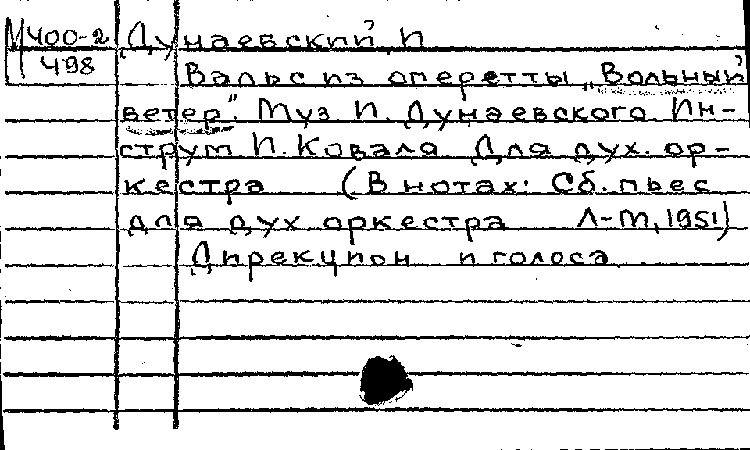 М400-2 Дунаевский, И
498
Вальс из оперетты „Вольный
ветер". Муз И. Дунаевского Ин-
струм И. Коваля Для дух. ор-
кестра (В нотах: Сб. пьес
для дух оркестра Л-М, 1951)
Дирекцион и голоса